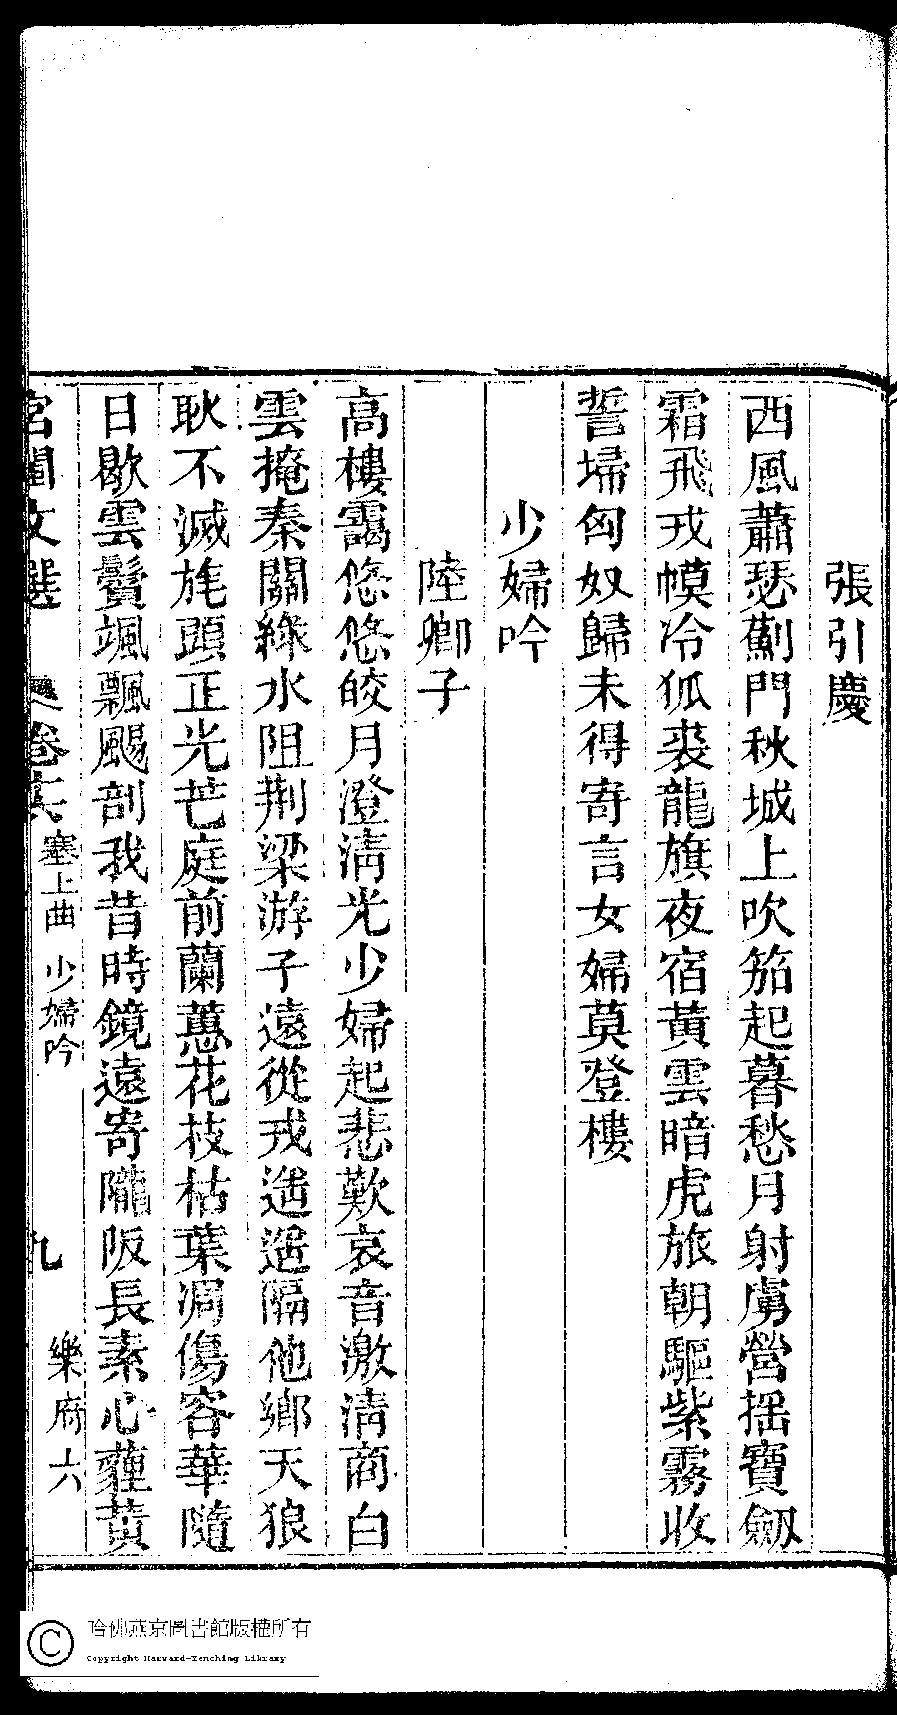 張引慶
西風蕭瑟薊門秋城上吹笳起暮愁月射虜營揺寶劔
霜飛戎幙冷狐裘龍旗夜宿黃雲暗虎旅朝驅紫霧收
誓埽匈奴歸未得寄言女婦莫登樓
少婦吟
陸卿子
高樓靄悠悠皎月澄清光少婦起悲歎哀音激清商白
雲掩秦關綠水阻荆梁游子遠從戎遥遥隔他鄉天狼
耿不滅旄頭正光芒庭前蘭蕙花枝枯葉凋傷容華隨
日歇雲鬢颯飄颺剖我昔時鏡遠寄隴阪長素心蕹黃
宮閨文選
卷六 塞上曲 少婦吟 九 樂府六
哈佛燕京圖書館版權所有
Copyright Harvard-Yenching Library